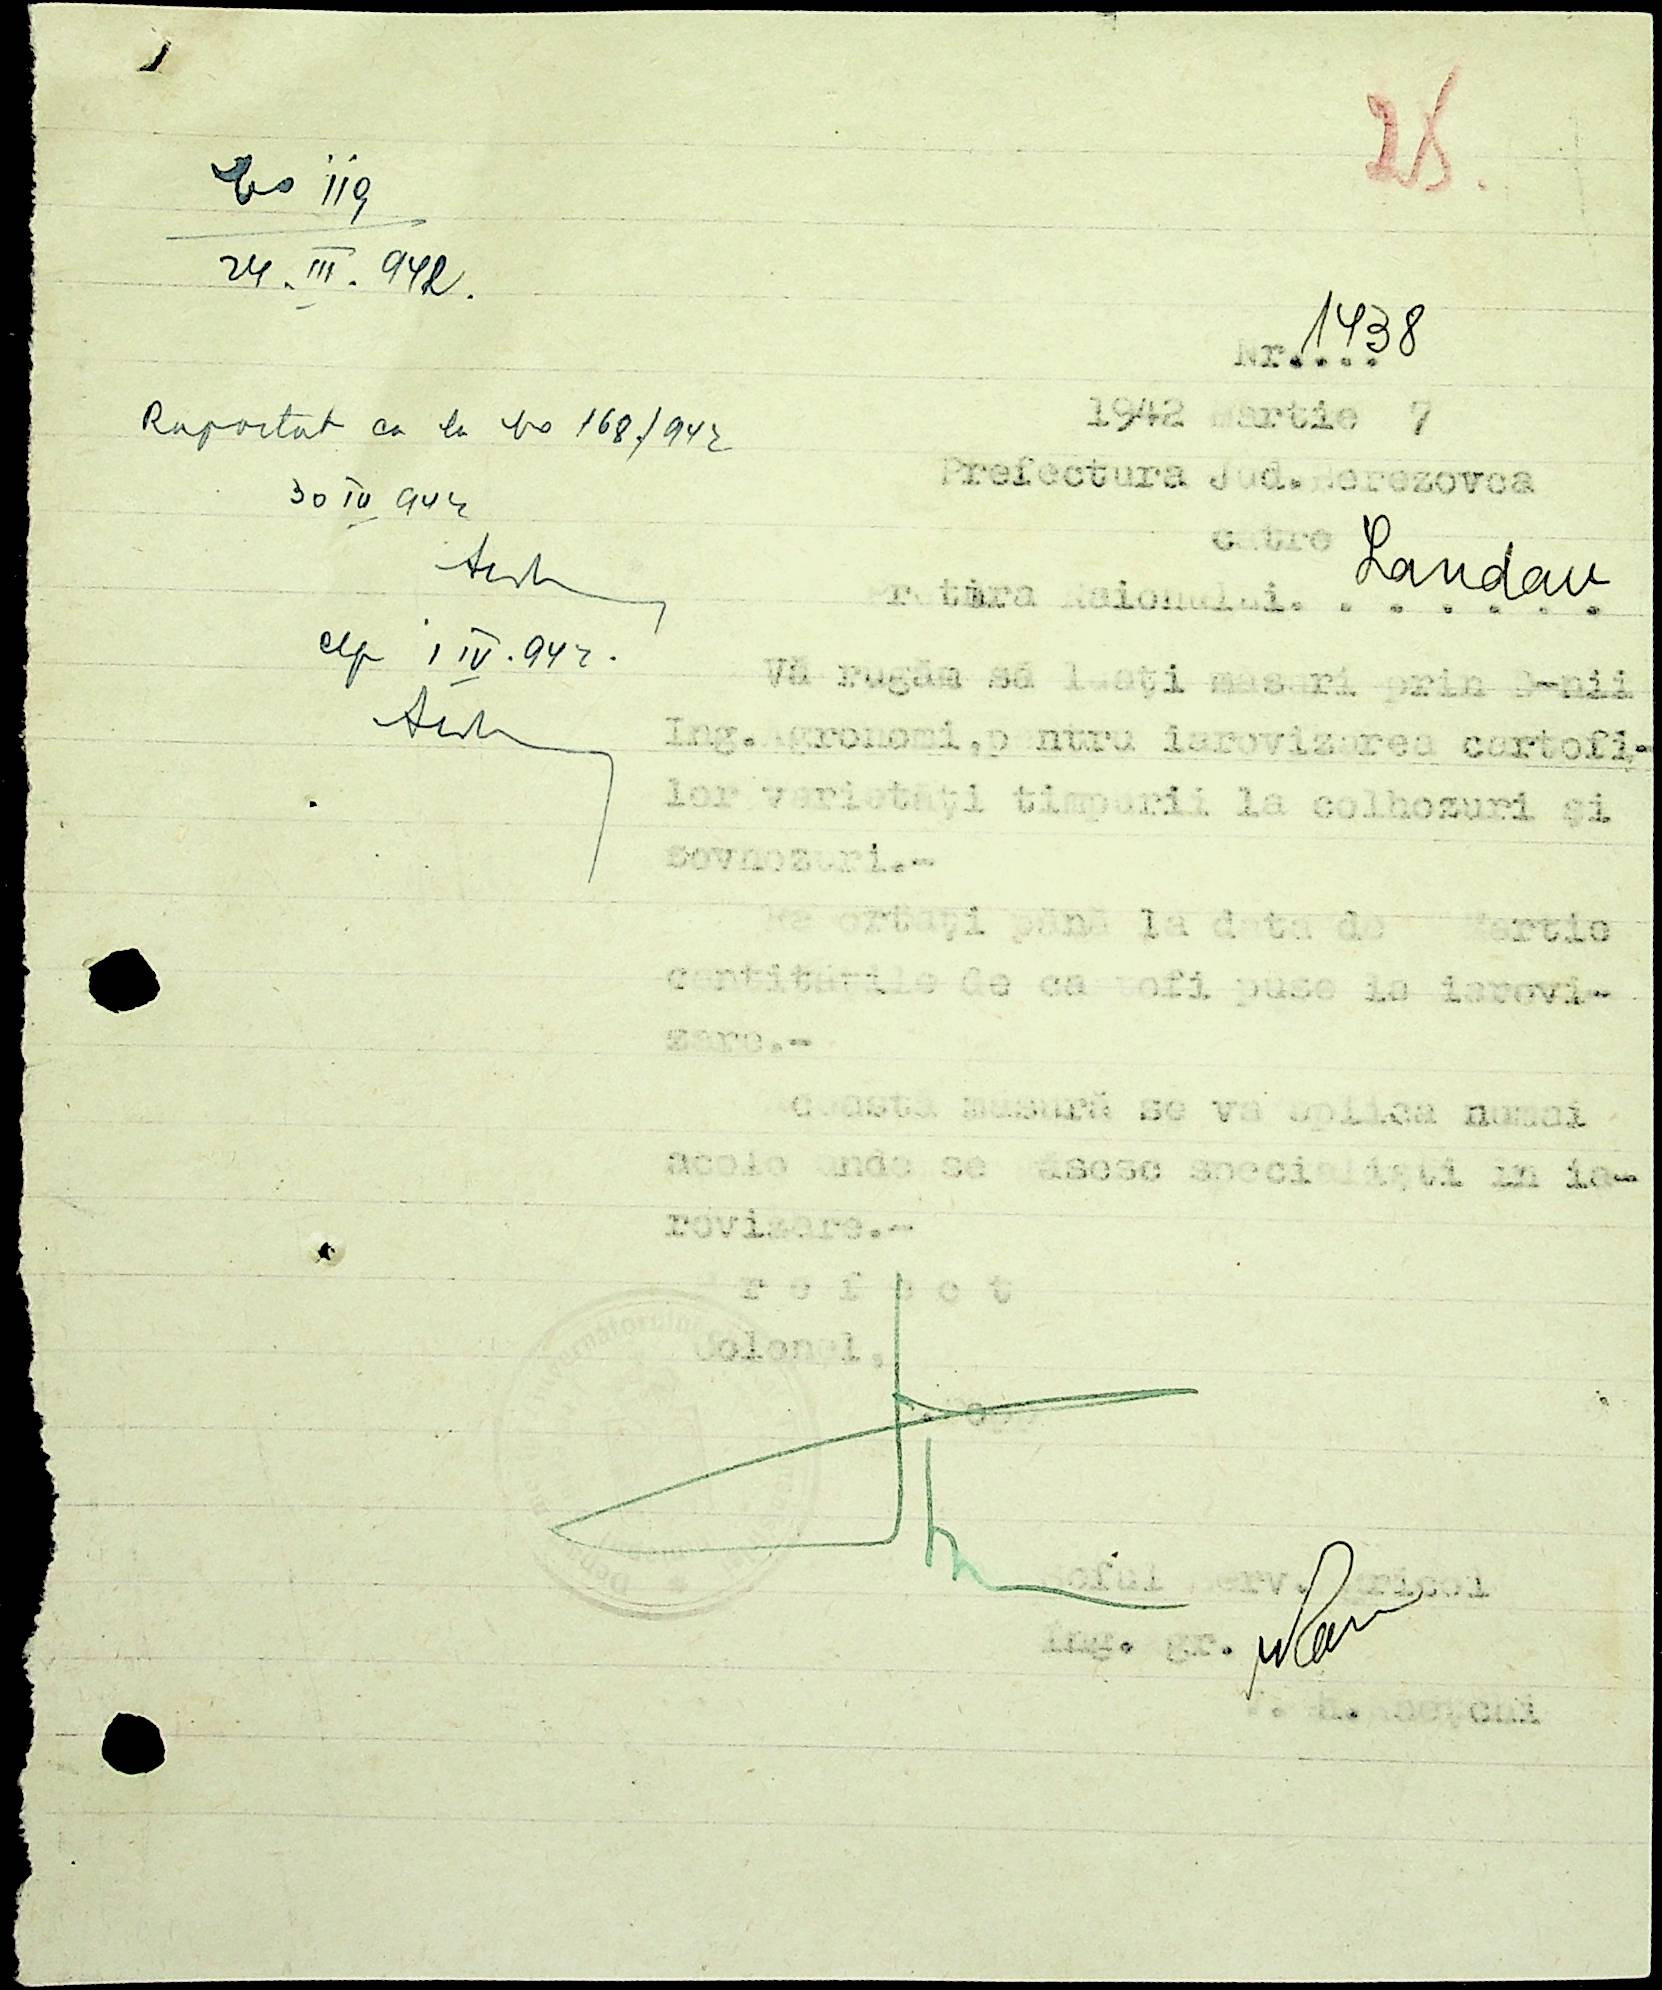 28.
No 119
24.III.942.
Nr....1438
1942 Martie 7
Prefectura Jud. Berezovca
catre
Pretura Raionului. . . . . . . Landau
Raportat ca la No 168/942
30 IV 942
1 IV.942.
Vă rugăm să luați masuri prin D-nii
Ing. Agronomi, pentru iarovizarea cartofi-
lor varietăți timpurii la colhozuri și
sovhozuri.-
Raportați până la data de Martie
cantitățile de cartofi puse la iarovi-
zare.-
Aceasta masură se va aplica numai
acolo unde se găsesc specialiști in ia-
rovizare.-
P r e f e c t
Colonel,
Șeful Serv. Agricol
Ing. Agr.